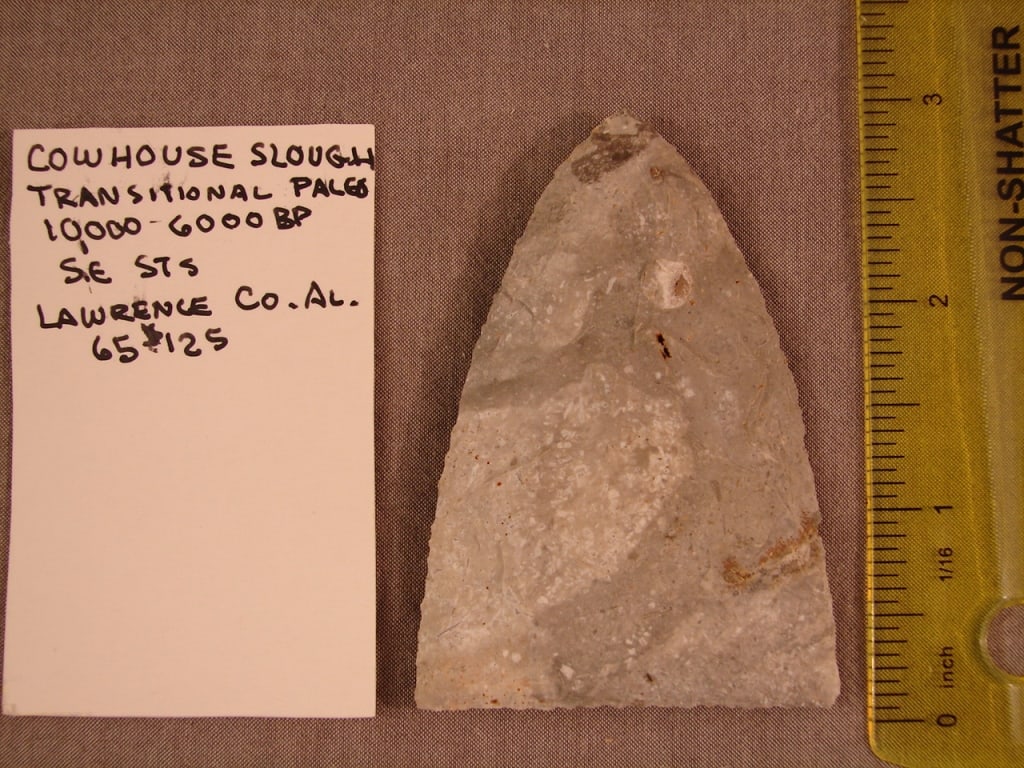 COWHOUSE SLOUGH
TRANSITIONAL PALEO
10,000-6000 BP
S.E STS
LAWRENCE CO. AL.
65 $125
3
2
1
1/16
inch
0
NON-SHATTER